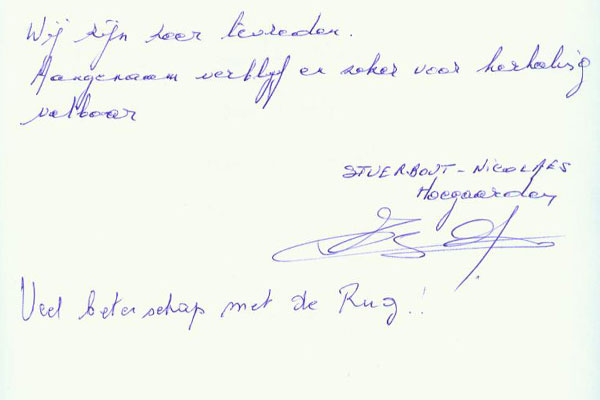 Wij zijn zeer tevreden.
Aangenaam verblijf en zeker voor herhaling
vatbaar
STUERBOUT - NICOLAES
Hoegaarden
Veel beterschap met de Rug!!